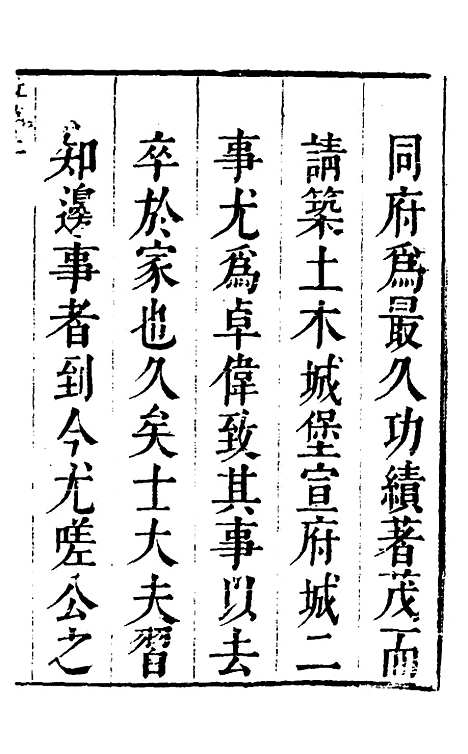 同府爲最久功績著茂而
請築土木城堡宣府城二
事尤爲卓偉致其事以去
卒於家也久矣士大夫習
知邊事者到今尤嗟公之